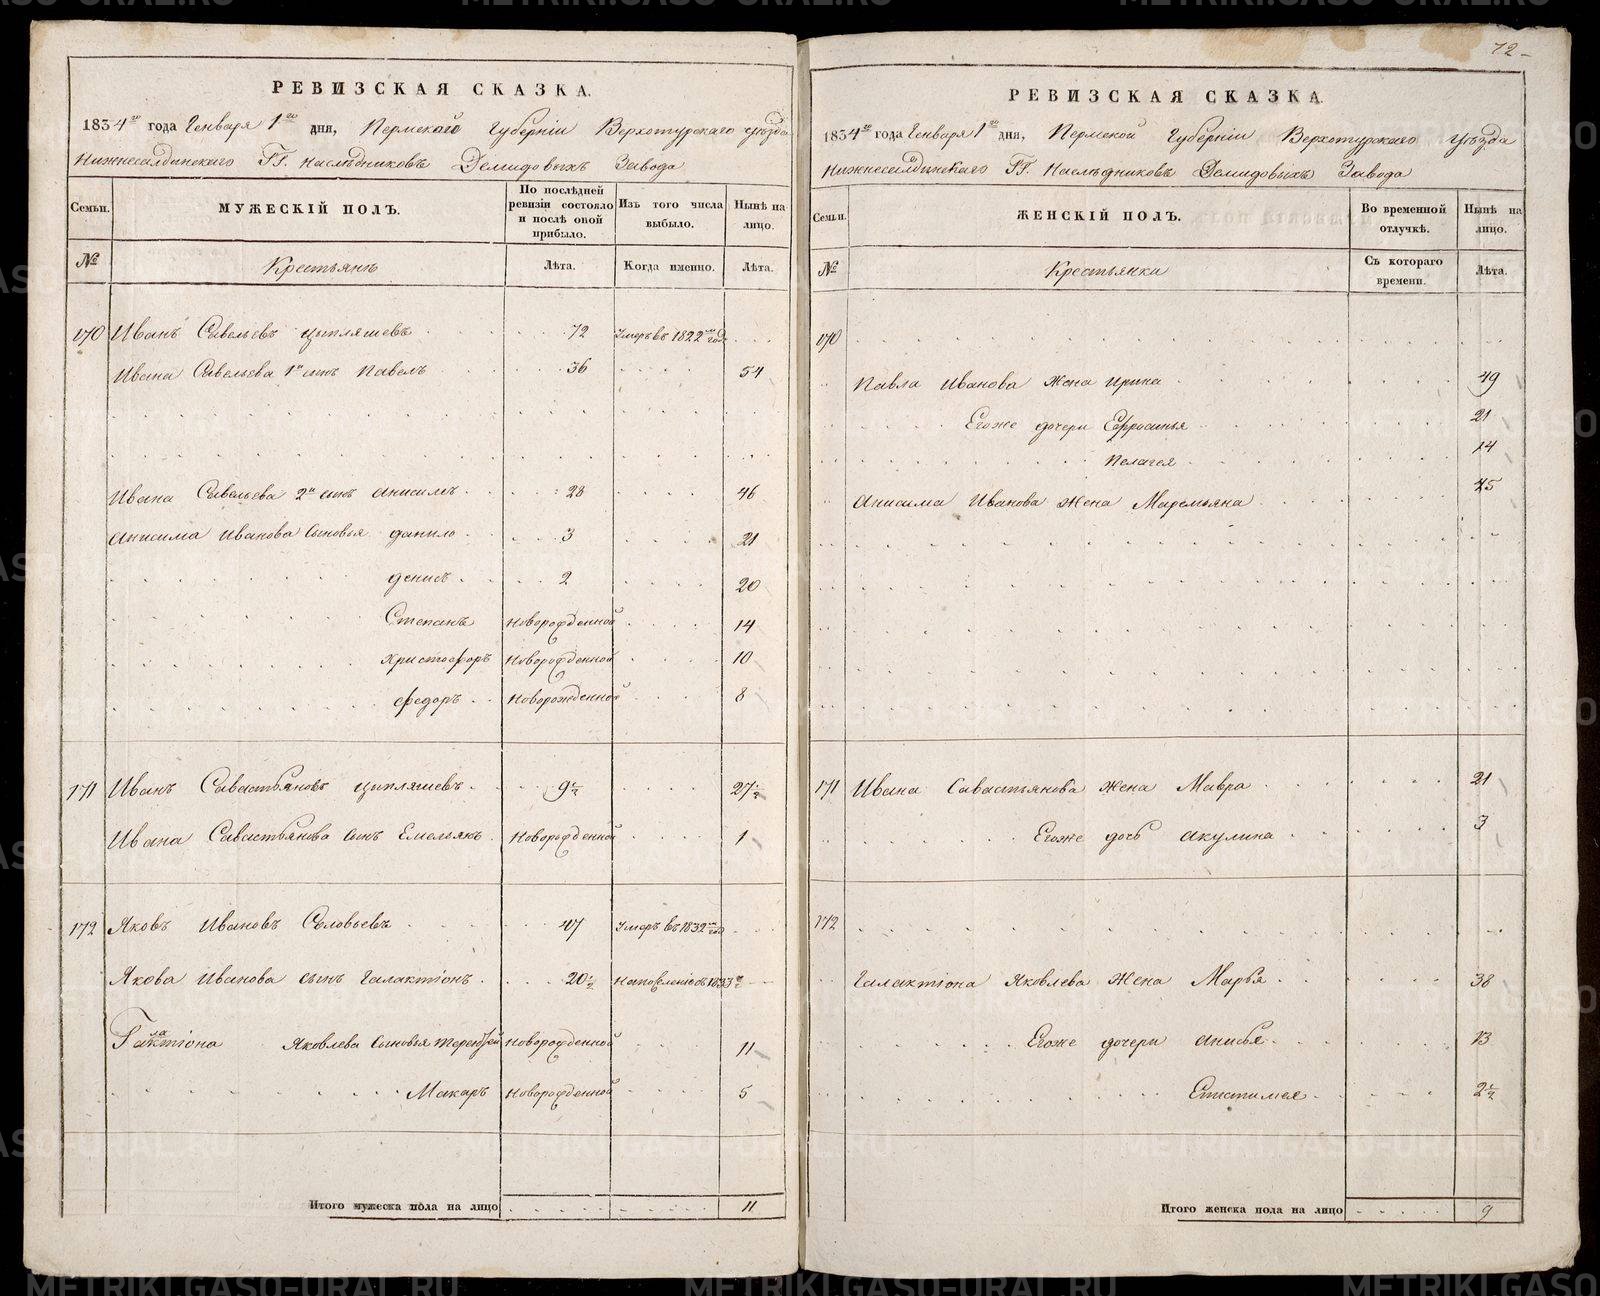 72
РЕВИЗСКАЯ СКАЗКА.
1834го года Генваря 1го дня, Пермской Губерніи Верхотурскаго уѣзда
Нижнесалдинскаго ГГ. Наслѣдниковъ Демидовыхъ Завода
Семьи.
МУЖЕСКІЙ ПОЛЪ.
По послѣдней ревизіи состояло и послѣ оной прибыло.
Изъ того числа выбыло.
Нынѣ на лицо.
№
Крестьянъ
Лѣта.
Когда именно.
Лѣта.
170 Иванъ Савельевъ Цыпляшевъ 72 Умеръ въ 1822м год
Ивана Савельева 1й сынъ Павелъ 36 54
Ивана Савельева 2й сынъ Анисимъ 28 46
Анисима Иванова Сыновья Данило 3 21
Денисъ 2 20
Степанъ Новорожденной 14
Христофоръ Новорожденной 10
Федоръ Новорожденной 8
171 Иванъ Савастьяновъ Цыпляшевъ 9½ 27½
Ивана Савастьянова сынъ Емельянъ Новорожденной 1
172 Яковъ Ивановъ Соловьевъ 47 Умеръ въ 1832м год
Якова Иванова сынъ Галактіонъ 20½ На поселеніе въ 1833м
Галактіона Яковлева Сыновья Терентей Новорожденной 11
Макаръ Новорожденной 5
Итого мужеска пола на лицо 11
РЕВИЗСКАЯ СКАЗКА.
1834го года Генваря 1го дня, Пермской Губерніи Верхотурскаго Уѣзда
Нижнесалдинскаго ГГ. Наслѣдниковъ Демидовыхъ Завода
Семьи.
ЖЕНСКІЙ ПОЛЪ.
Во временной отлучкѣ.
Нынѣ на лицо.
№
Крестьянки
Съ котораго времени.
Лѣта.
170
Павла Иванова жена Ирина 49
Егоже дочери Ефросинья 21
Пелагея 14
Анисима Иванова жена Маремьяна 45
171 Ивана Савастьянова жена Мавра 21
Егоже дочь Акулина 3
172
Галактіона Яковлева жена Марья 38
Егоже дочери Анисья 13
Епистимея 2½
Итого женска пола на лицо 9
METRIKI.GASO-URAL.RU